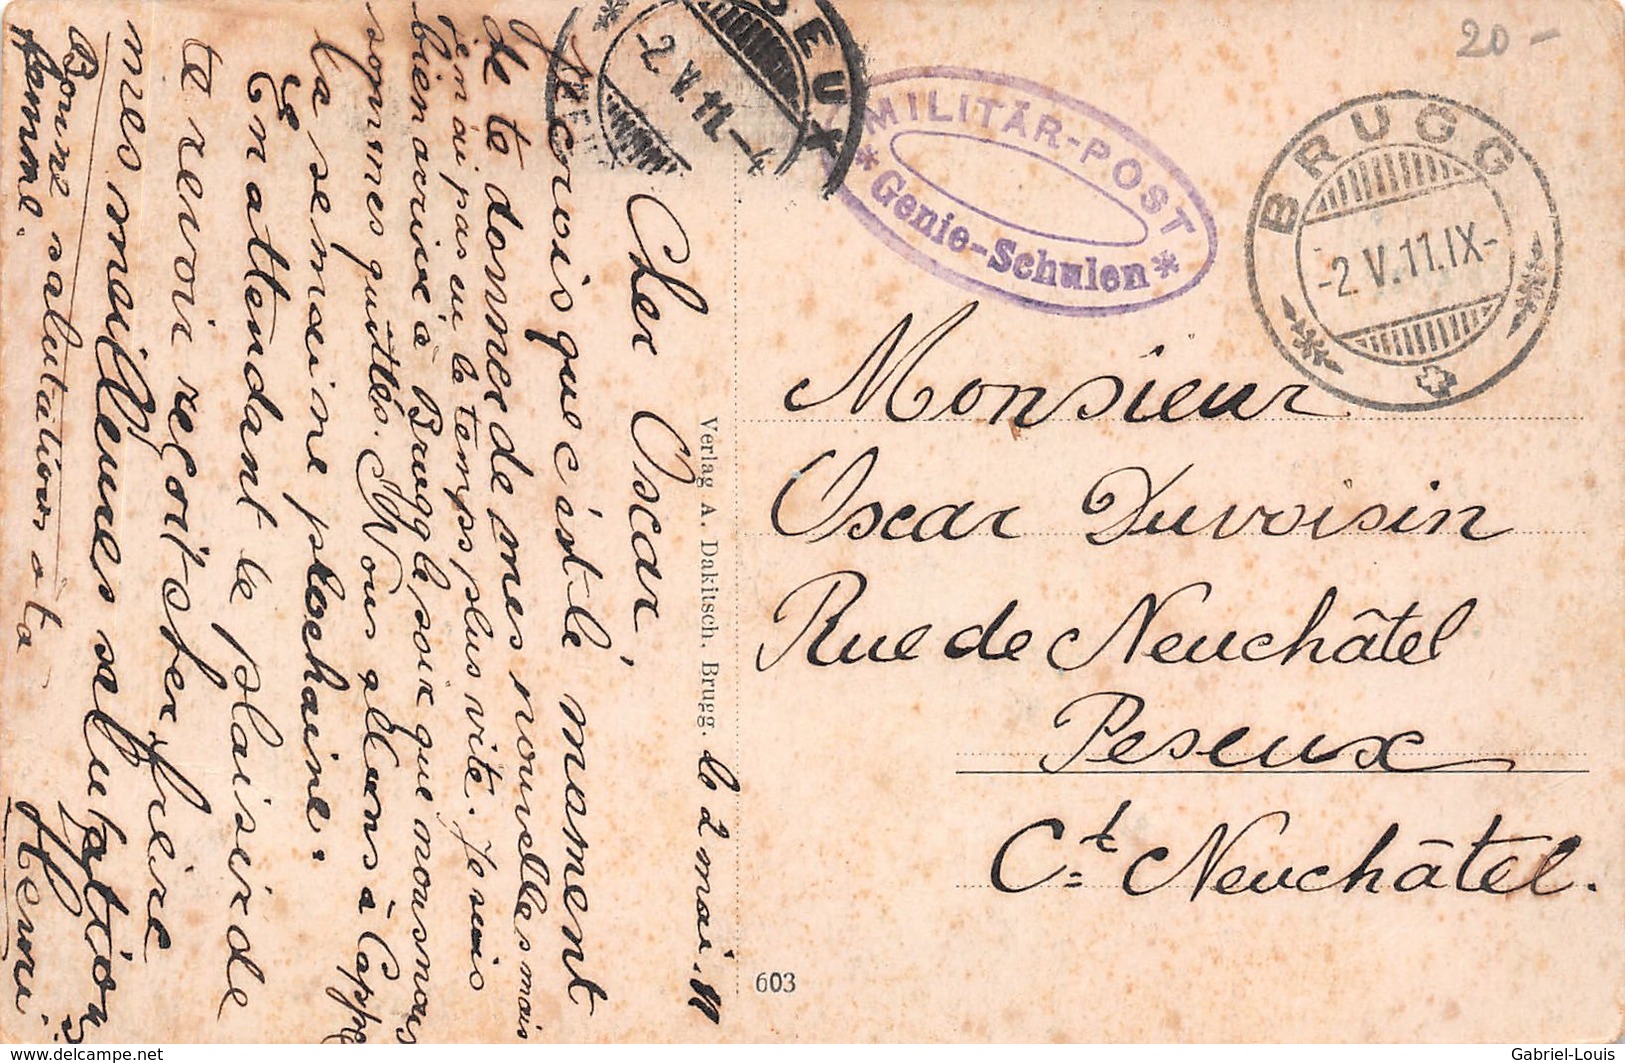 le 2 mai. 11
Cher Oscar,
Je crois que c'est le moment
de te donner de mes nouvelles mais
je n'ai pas eu le temps plus vite. Je suis
bien arrivé à Brugg le soir que nous nous
sommes quittés. Nous allons à
la semaine prochaine.
En attendant le plaisir de
te revoir reçoit cher frère
mes meilleures salutations
Bonne salutations a ta
femme.
Henri
Verlag A. Dakitsch. Brugg.
603
PESEUX
-2.V.11.-4
MILITÄR-POST
* Genie-Schulen *
BRUGG
-2.V.11.IX-
20 -
Monsieur
Oscar Duvoisin
Rue de Neuchâtel
Peseux
Ct. Neuchâtel.
www.delcampe.net
Gabriel-Louis